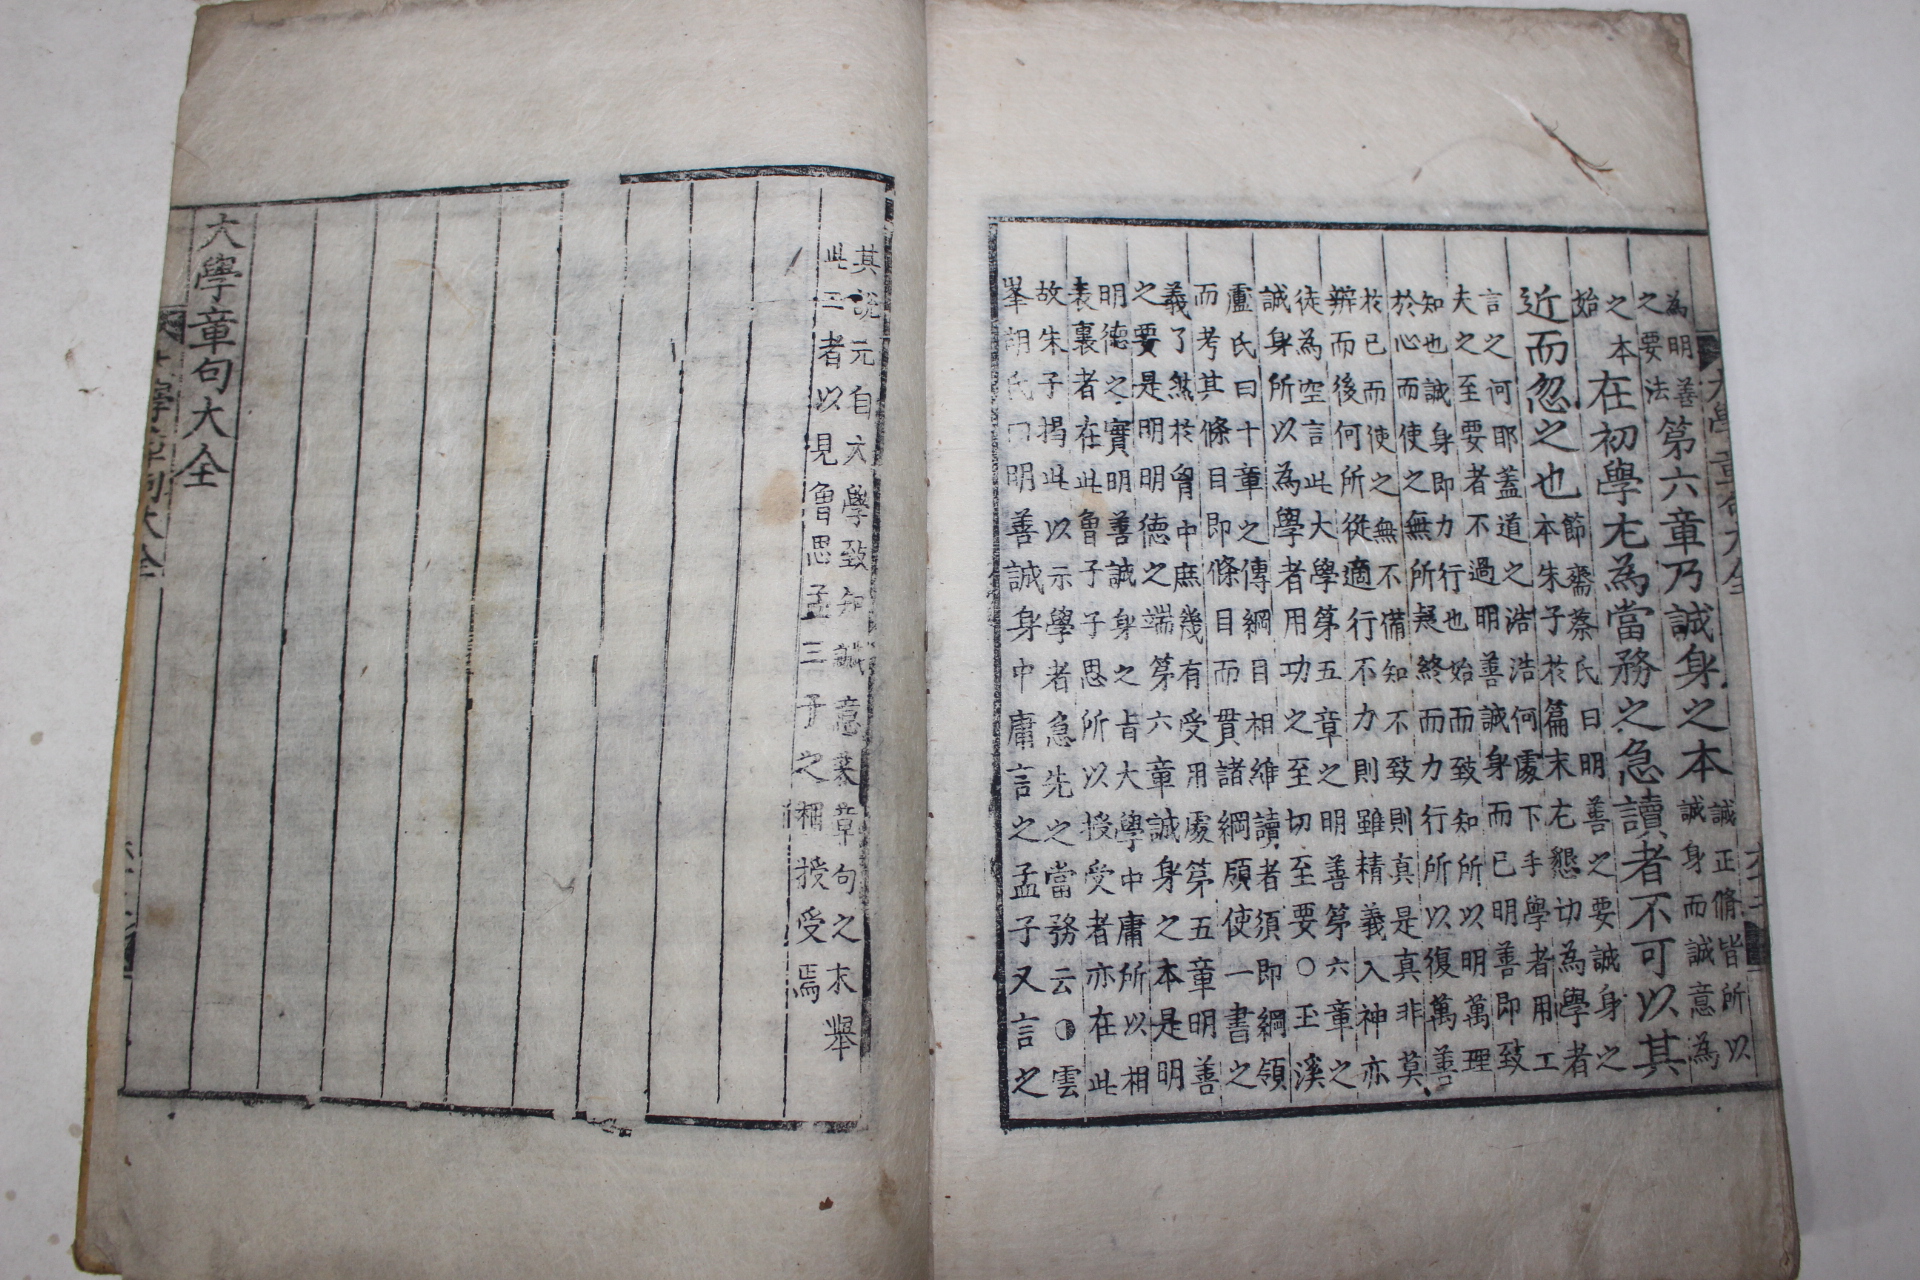 為明善
之要法
第六章乃誠身之本
誠正脩皆所以
誠身而誠意為
之本
始
在初學尤為當務之急讀者不可以其
近而忽之也
節齋蔡氏曰明善之要誠身之
本朱子於篇末尤懇切為學者
言之何耶蓋道之浩浩何處下手學者用工
夫之至要者不過明善誠身而已明善即致
知也誠身即力行也始而致知所以明萬理
於心而使之無所疑終而力行所以復萬善
於已而使之無不備知不致則真是真非莫
辨而後何所從適行不力則雖精義入神亦
徒為空言此大學第五章之明善第六章之
誠身所以為學者用功之至切至要○玉溪
盧氏曰十章之傳綱目相維讀者須即綱領
而考其條目即條目而貫諸綱領使一書之
義了然於胷中庶幾有受用處第五章明善
之要是明明德之端第六章誠身之本是明
明德之實明善誠身之旨大學中庸所以相
表裏者在此曾子子思所以授受者亦在此
故朱子揭此以示學者急先之當務云◑雲
峯胡氏曰明善誠身中庸言之孟子又言之
其說元自大學致知誠意來章句之末舉
此二者以見曾思孟三子之相授受焉
大學章句大全